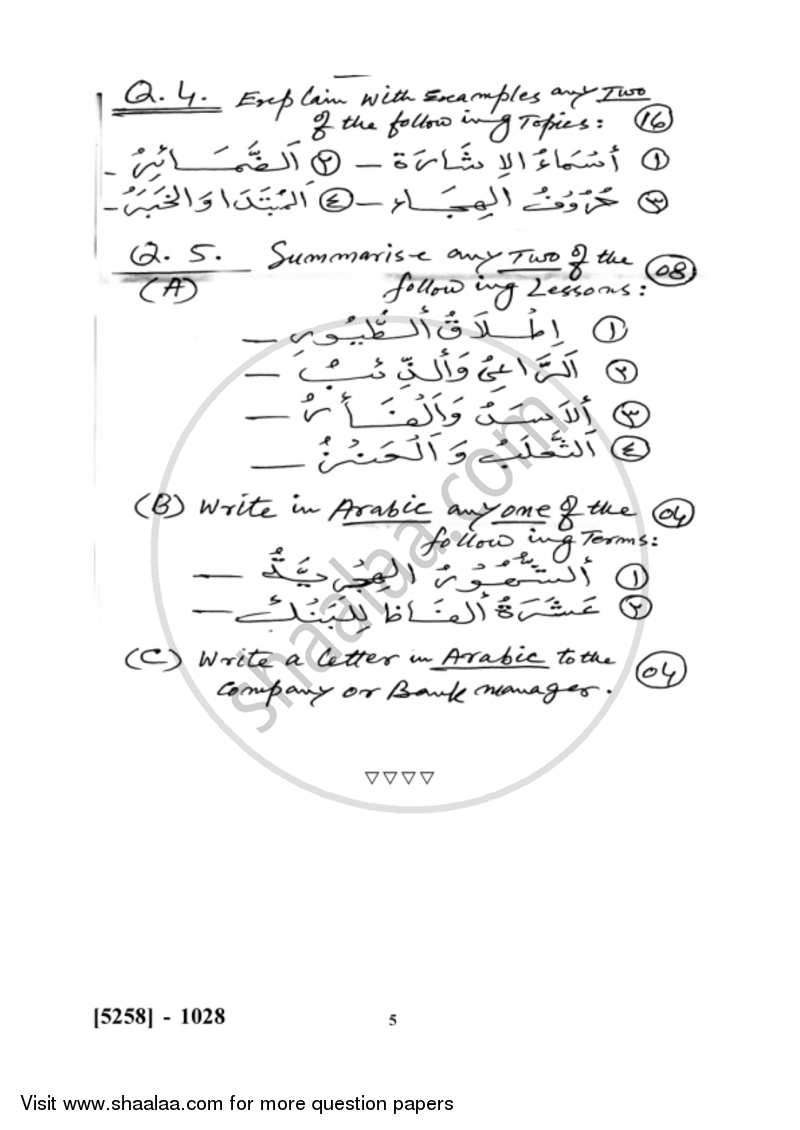 Q. 4. Explain with Examples any Two
of the following Topics: 16
١ أَسْمَاءُ الإِشَارَة — ٢ اَلضَّمَائِرُ -
٣ حُرُوْفُ الهِجَاء — ٤ اَلمُبْتَدَا وَالخَبَرُ -
Q. 5. Summarise any Two of the 08
(A) following Lessons:
١ إِطْلَاقُ ألطُّيُورِ —
٢ اَلرَّاعِيُ وَألذِّئبُ —
٣ ألاَسَدُ وَاَلْفَأرُ —
٤ اَلثَّعلَبُ وَ اَلْعَنْزُ —
(B) Write in Arabic any one of the 04
following Terms:
١ ألشُّهُورُ الهِجْرِيَّةُ —
٢ عَشَرَةُ ألفَاظ لِلْبَنْك —
(C) Write a letter in Arabic to the 04
Company or Bank manager.
▽▽▽▽
shaalaa.com
[5258] - 1028 5
Visit www.shaalaa.com for more question papers